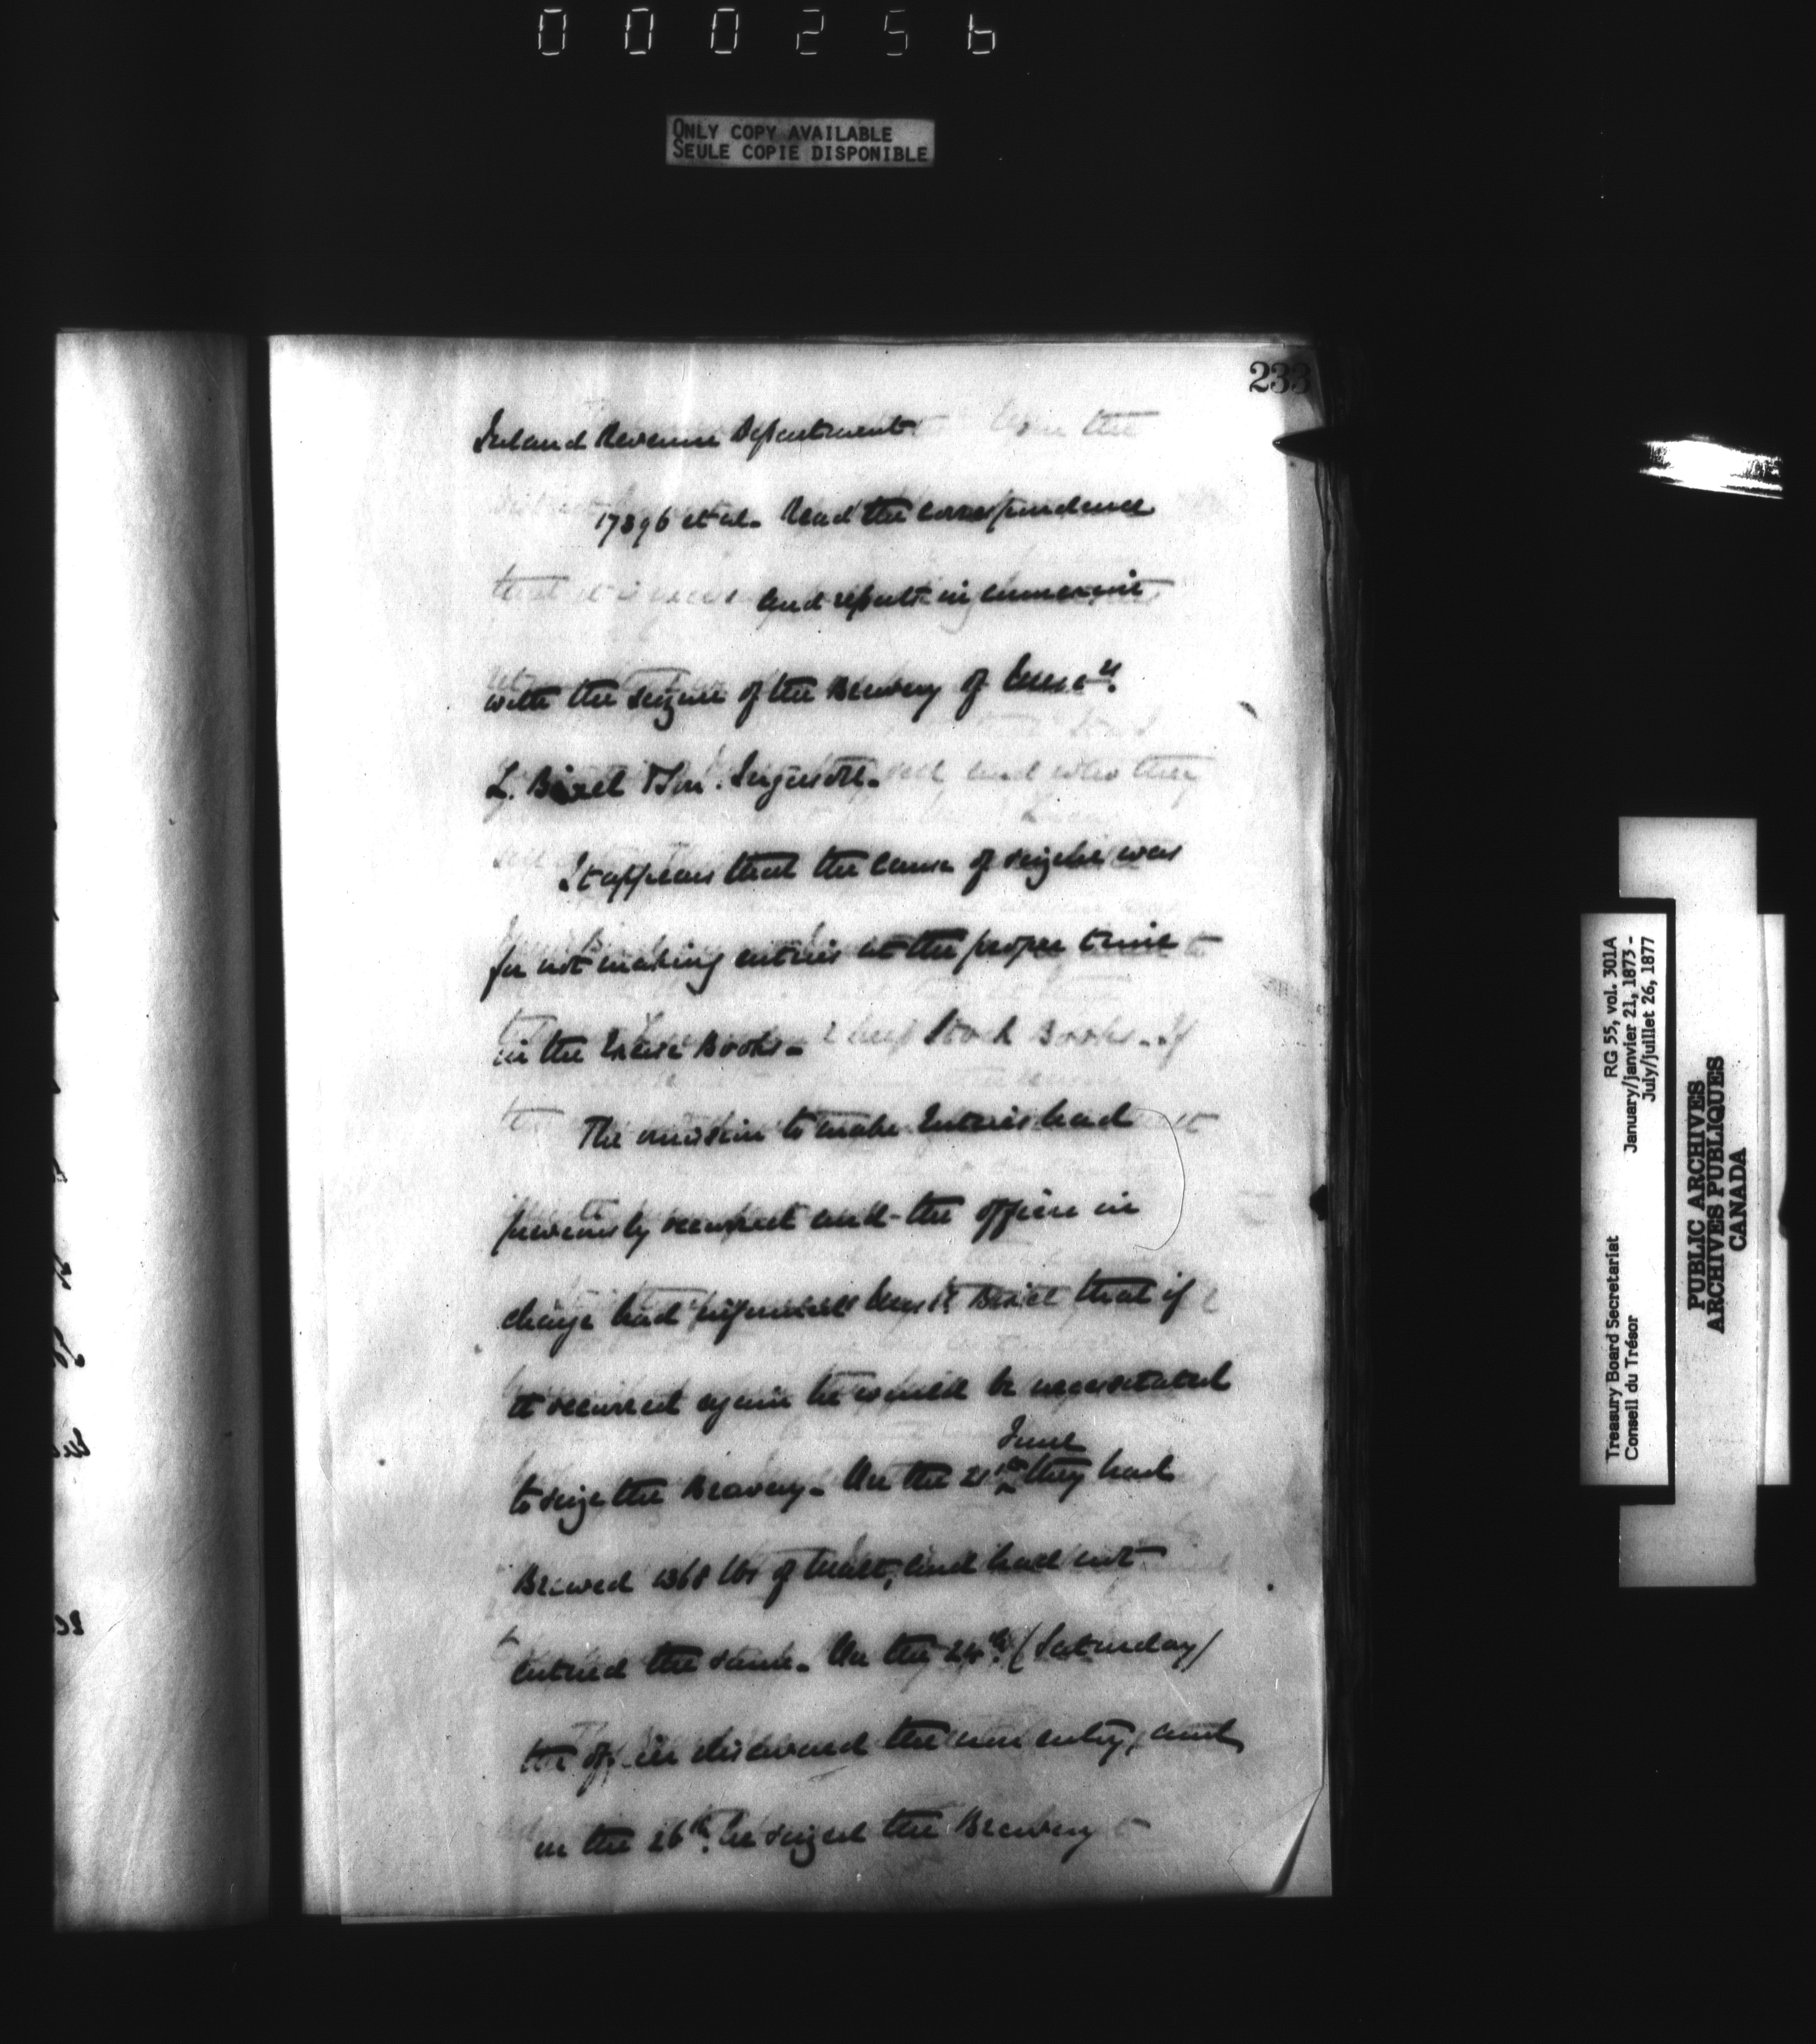 000256
ONLY COPY AVAILABLE
SEULE COPIE DISPONIBLE
233
Inland Revenue Department
17896 et al. Read the correspondence
and reports in connexion
with the seizure of the Brewery of Mess rs.
L. Bixel & Son. Ingersoll.
It appears that the cause of seizure was
for not making entries at the proper time
in the Excise Books.
The omission to make Entries had
previously occurred and the officer in
charge had informed Mess rs Bixel that if
it occurred again he would be necessitated
to seize the Brewery. On the 21st June they had
Brewed 1368 lbs of Malt, and had not
entered the same. On the 24th. (Saturday)
the officer discovered the non entry, and
on the 26th. he seized the Brewery
RG 55, vol. 301A
January/janvier 21, 1873 -
July/juillet 26, 1877
Treasury Board Secretariat
Conseil du Trésor
PUBLIC ARCHIVES
ARCHIVES PUBLIQUES
CANADA